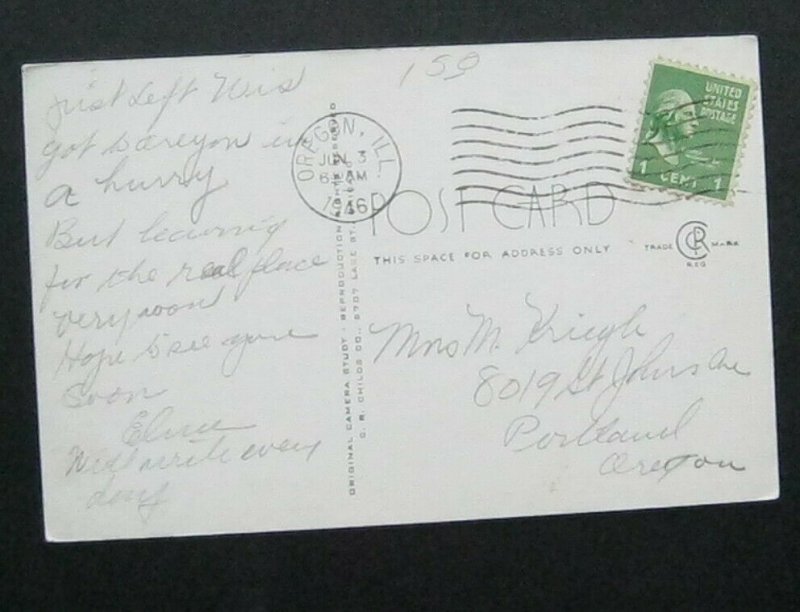 159
Just Left Wis
got to Oregon in
a hurry
But leaving
for the real place
very soon
Hope to see you
soon
Will write every
day
OREGON, ILL.
JUN 3
6 AM
1946
UNITED
STATES
POSTAGE
1 CENT 1
POST CARD
THIS SPACE FOR ADDRESS ONLY
TRADE CR MARK
REG
ORIGINAL CAMERA STUDY - REPRODUCTION RIGHTS RESERVED
C. R. CHILDS CO., 5707 LAKE ST.
Mrs M. Kriegh
8019 St Johns Ave
Portland
Oregon